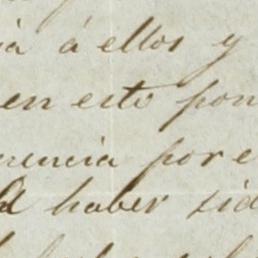 ia á ellos y
en esto pon
rencia por e
d haber sid